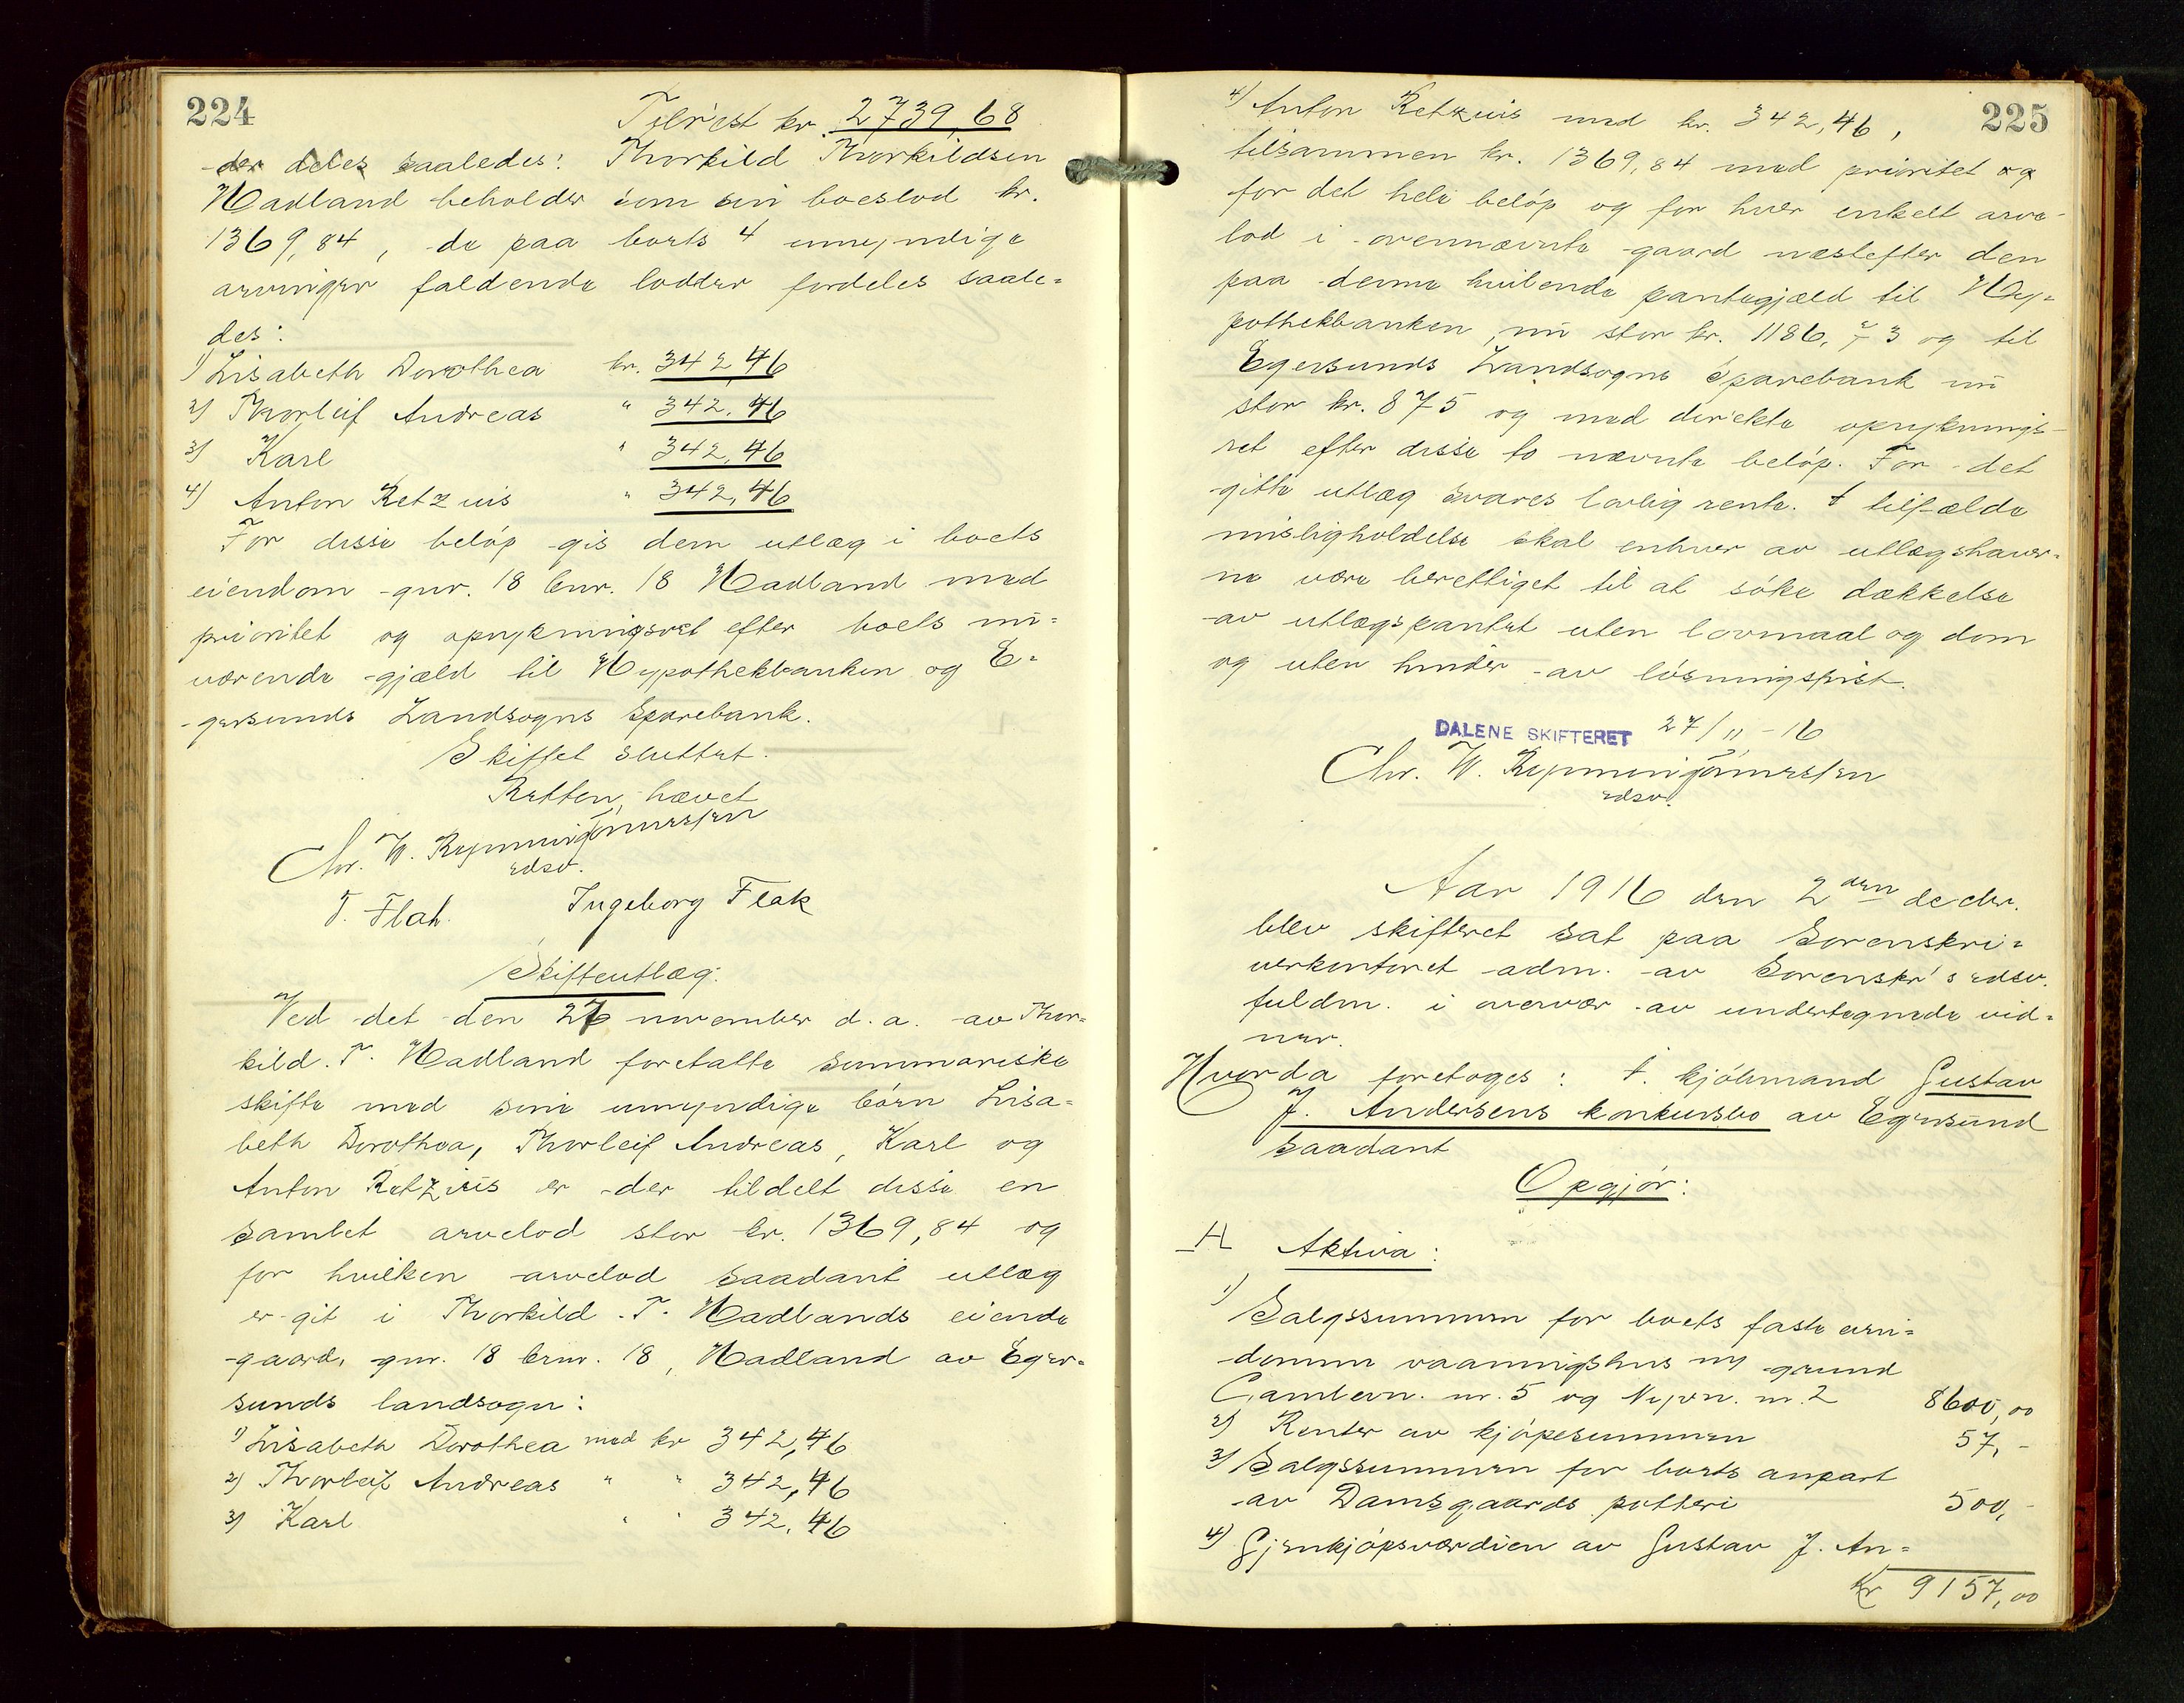 224
Tilrest kr. 2739,68
der deles saaledes: Thorkild Thorkildsen
Hadland beholder som sin boeslod kr.
1369,84, de paa boets 4 umyndige
arvinger faldende lodder fordeles saale=
des:
1) Lisabeth Dorothea kr. 342,46
2) Thorleif Andreas " 342,46
3) Karl " 342,46
4) Anton Retzius " 342,46
For disse beløp gis dem utlæg i boets
eiendom gnr. 18 bnr. 18 Hadland med
prioritet og oprykningsret efter boets nu=
værende gjæld til Hypothekbanken og E=
gersunds Landsogns Sparebank.
Skiftet sluttet.
Retten hævet
Chr. W. Rynning Tønnessen
edsv.
T. Flak. Ingeborg Flak
Skifteutlæg:
Ved det den 27 november d. a. av Thor=
kild T. Hadland foretatte summariske
skifte med sine umyndige børn Lisa=
beth Dorothea, Thorleif Andreas, Karl og
Anton Retzius er der tildelt disse en
samlet arvelod stor kr. 1369,84 og
for hvilken arvelod saadant utlæg
er git i Thorkild T. Hadlands eiende
gaard, gnr. 18 brnr. 18, Hadland av Eger=
sunds landsogn:
1) Lisabeth Dorothea med kr 342,46
2) Thorleif Andreas " " 342,46
3) Karl " " 342,46
225
4) Anton Retzius med kr. 342,46,
tilsammen kr. 1369,84 med prioritet og
for det hele beløp og for hver enkelt arve-
lod i ovennævnte gaard næstefter den
paa denne hvilende pantegjæld til Hy=
pothekbanken, nu stor kr. 1186,73 og til
Egersunds Landsogns Sparebank nu
stor kr. 875 og med direkte opryknings-
ret efter disse to nævnte beløp. For det
gitte utlæg svares lovlig rente. I tilfælde
misligholdelse skal enhver av utlægshaver=
ne være berettiget til at søke dækkelse
av utlægspantet uten lovmaal og dom
og uten hinder av løsningsfrist.
DALENE SKIFTERET 27/11-16
Chr. W. Rynning Tønnessen
edsv.
Aar 1916 den 2den decbr.
blev skifteret sat paa Sorenskri=
verkontoret adm. av Sorenskr's edsv.
fuldm. i overvær av undertegnede vid=
ner.
Hvorda foretoges: I. kjøbmand Gustav
J. Andersens konkursbo av Egersund
saadant
Opgjør:
A Aktiva:
1) Salgssummen for boets faste eien=
domme vaaningshus m/ grund
Gamlevn. nr. 5 og Nyvn. nr. 2 8600,00
2) Renter av kjøpesummen 57,-
3) Salgssummen for boets anpart
av Damsgaards potteri 500,-
4) Gjenkjøpsværdien av Gustav J. An=
Kr 9157,00